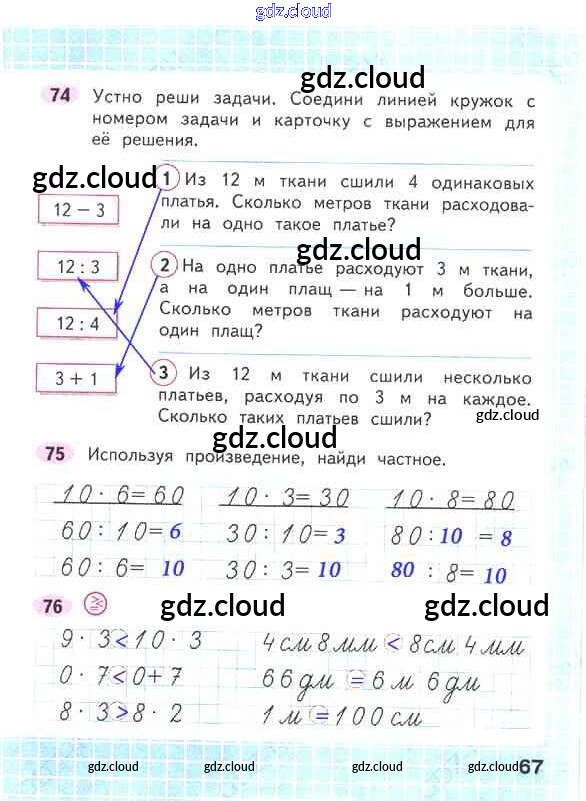 gdz.cloud
gdz.cloud
74 Устно реши задачи. Соедини линией кружок с
номером задачи и карточку с выражением для
её решения.
gdz.cloud
1 Из 12 м ткани сшили 4 одинаковых
платья. Сколько метров ткани расходова-
ли на одно такое платье?
12 − 3
gdz.cloud
12 : 3
2 На одно платье расходуют 3 м ткани,
а на один плащ — на 1 м больше.
Сколько метров ткани расходуют на
один плащ?
12 : 4
3 + 1
3 Из 12 м ткани сшили несколько
платьев, расходуя по 3 м на каждое.
Сколько таких платьев сшили?
gdz.cloud
gdz.cloud
75 Используя произведение, найди частное.
10 · 6 = 60 10 · 3 = 30 10 · 8 = 80
60 : 10 = 6 30 : 10 = 3 80 : 10 = 8
60 : 6 = 10 30 : 3 = 10 80 : 8 = 10
76
gdz.cloud gdz.cloud
9 · 3 < 10 · 3 4 см 8 мм < 8 см 4 мм
0 · 7 < 0 + 7 66 дм = 6 м 6 дм
8 · 3 > 8 · 2 1 м = 100 см
gdz.cloud gdz.cloud gdz.cloud 67